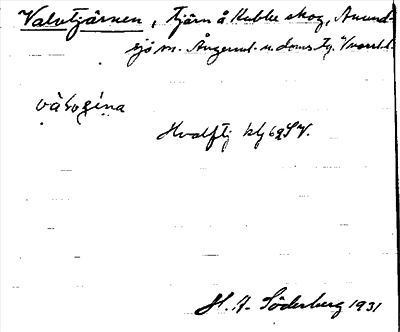 Valvtjärnen, tjärn å Kubbe skog, Anund-
sjö sn. Ångerml. n. doms. Tg. V/norrl. l.
Hvalftj kbl 62 SV.
H. A. Söderberg 1931